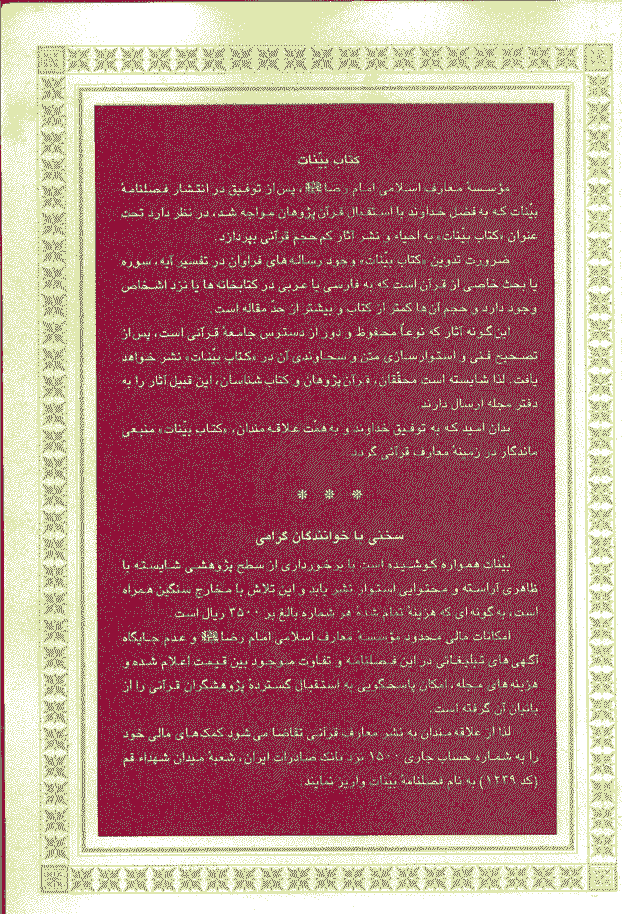 کتاب بیّنات
مؤسسهٔ معارف اسلامی امام رضا﷼، پس از توفیق در انتشار فصلنامهٔ
بیّنات که به فضل خداوند با استقبال قرآن‌پژوهان مواجه شد، در نظر دارد تحت
عنوان «کتاب بیّنات» به احیاء و نشر آثار کم‌حجم قرآنی بپردازد.
ضرورت تدوین «کتاب بیّنات» وجود رساله‌های فراوان در تفسیر آیه، سوره
یا بحث خاصی از قرآن است که به فارسی یا عربی در کتابخانه‌ها یا نزد اشخاص
وجود دارد و حجم آن‌ها کمتر از کتاب و بیشتر از حدّ مقاله است.
این‌گونه آثار که نوعاً محفوظ و دور از دسترس جامعهٔ قرآنی است، پس از
تصحیح فنّی و استوارسازی متن و سجاوندی آن در «کتاب بیّنات» نشر خواهد
یافت. لذا شایسته است محقّقان، قرآن‌پژوهان و کتاب‌شناسان، این قبیل آثار را به
دفتر مجله ارسال دارند.
بدان امید که به توفیق خداوند و به همّت علاقه‌مندان، «کتاب بیّنات» منبعی
ماندگار در زمینهٔ معارف قرآنی گردد.
❊ ❊ ❊
سخنی با خوانندگان گرامی
بیّنات همواره کوشیده است با برخورداری از سطح پژوهشی شایسته با
ظاهری آراسته و محتوایی استوار نشر یابد و این تلاش با مخارج سنگین همراه
است، به گونه‌ای که هزینهٔ تمام شدهٔ هر شماره بالغ بر ۳۵۰۰ ریال است.
امکانات مالی محدود مؤسسهٔ معارف اسلامی امام رضا و عدم جایگاه
آگهی‌های تبلیغاتی در این فصلنامه و تفاوت موجود بین قیمت اعلام شده و
هزینه‌های مجله، امکان پاسخگویی به استقبال گستردهٔ پژوهشگران قرآنی را از
بانیان آن گرفته است.
لذا از علاقه‌مندان به نشر معارف قرآنی تقاضا می‌شود کمک‌های مالی خود
را به شماره حساب جاری ۱۵۰۰ نزد بانک صادرات ایران، شعبهٔ میدان شهداء قم
(کد ۱۲۳۹) به نام فصلنامهٔ بیّنات واریز نمایند.